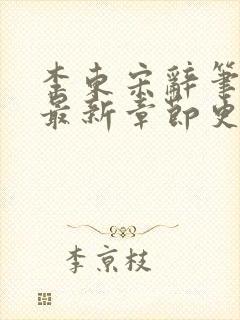 李東宗辭筆
最新章節史
李京枝